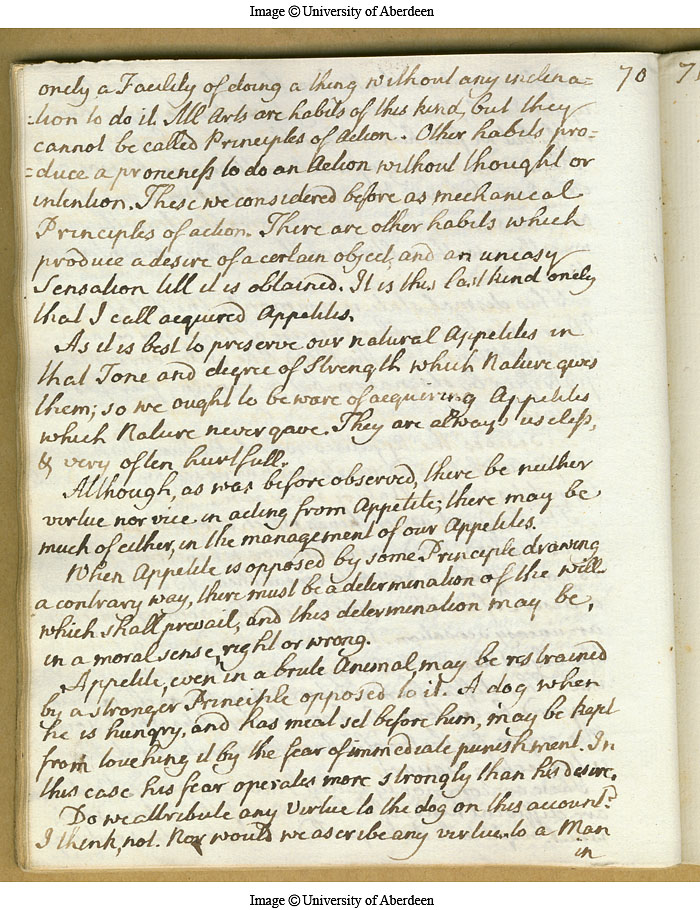 Image © University of Aberdeen
70
7
onely a Facility of doing a thing without any inclina=
=tion to do it. All Arts are habits of this kind, but they
cannot be called Principles of Action. Other habits pro=
=duce a proneness to do an Action without thought or
intention. These we considered before as mechanical
Principles of action. There are other habits which
produce a desire of a certain object, and an uneasy
Sensation till it is obtained. It is this last kind onely
that I call acquired Appetites.
As it is best to preserve our natural Appetites in
that Tone and degree of Strength which Nature gives
them; so we ought to beware of acquiring Appetites
which Nature never gave. They are always useless,
& very often hurtfull.
Although, as was before observed, there be neither
virtue nor vice in acting from Appetite; there may be
much of either, in the management of our Appetites.
When Appetite is opposed by some Principle drawing
a contrary way, there must be a determination of the will
which shall prevail, and this determination may be,
in a moral sense, right or wrong.
Appetite, even in a brute Animal, may be restrained
by a stronger Principle opposed to it. A dog when
he is hungry, and has meat set before him, may be kept
from touching it by the fear of immediate punishment. In
this case his fear operates more strongly than his desire.
Do we attribute any Virtue to the dog on this account?
I think, not. Nor would we ascribe any virtue to a Man
in
Image © University of Aberdeen